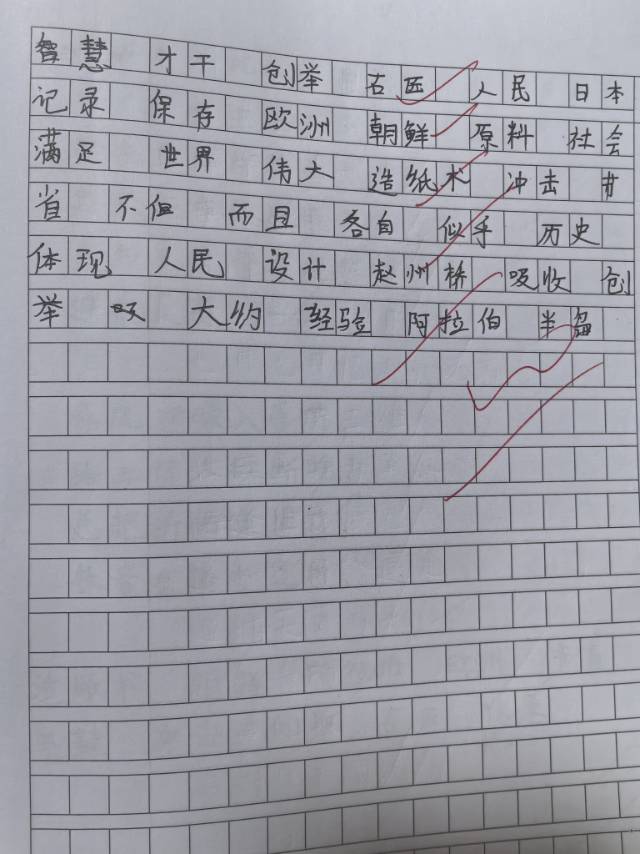 智慧 才干 创举 石匠 人民 日本
记录 保存 欧洲 朝鲜 原料 社会
满足 世界 伟大 造纸术 冲击 节
省 不但 而且 各自 似乎 历史
体现 人民 设计 赵州桥 吸收 创
举 大约 经验 阿拉伯 半岛